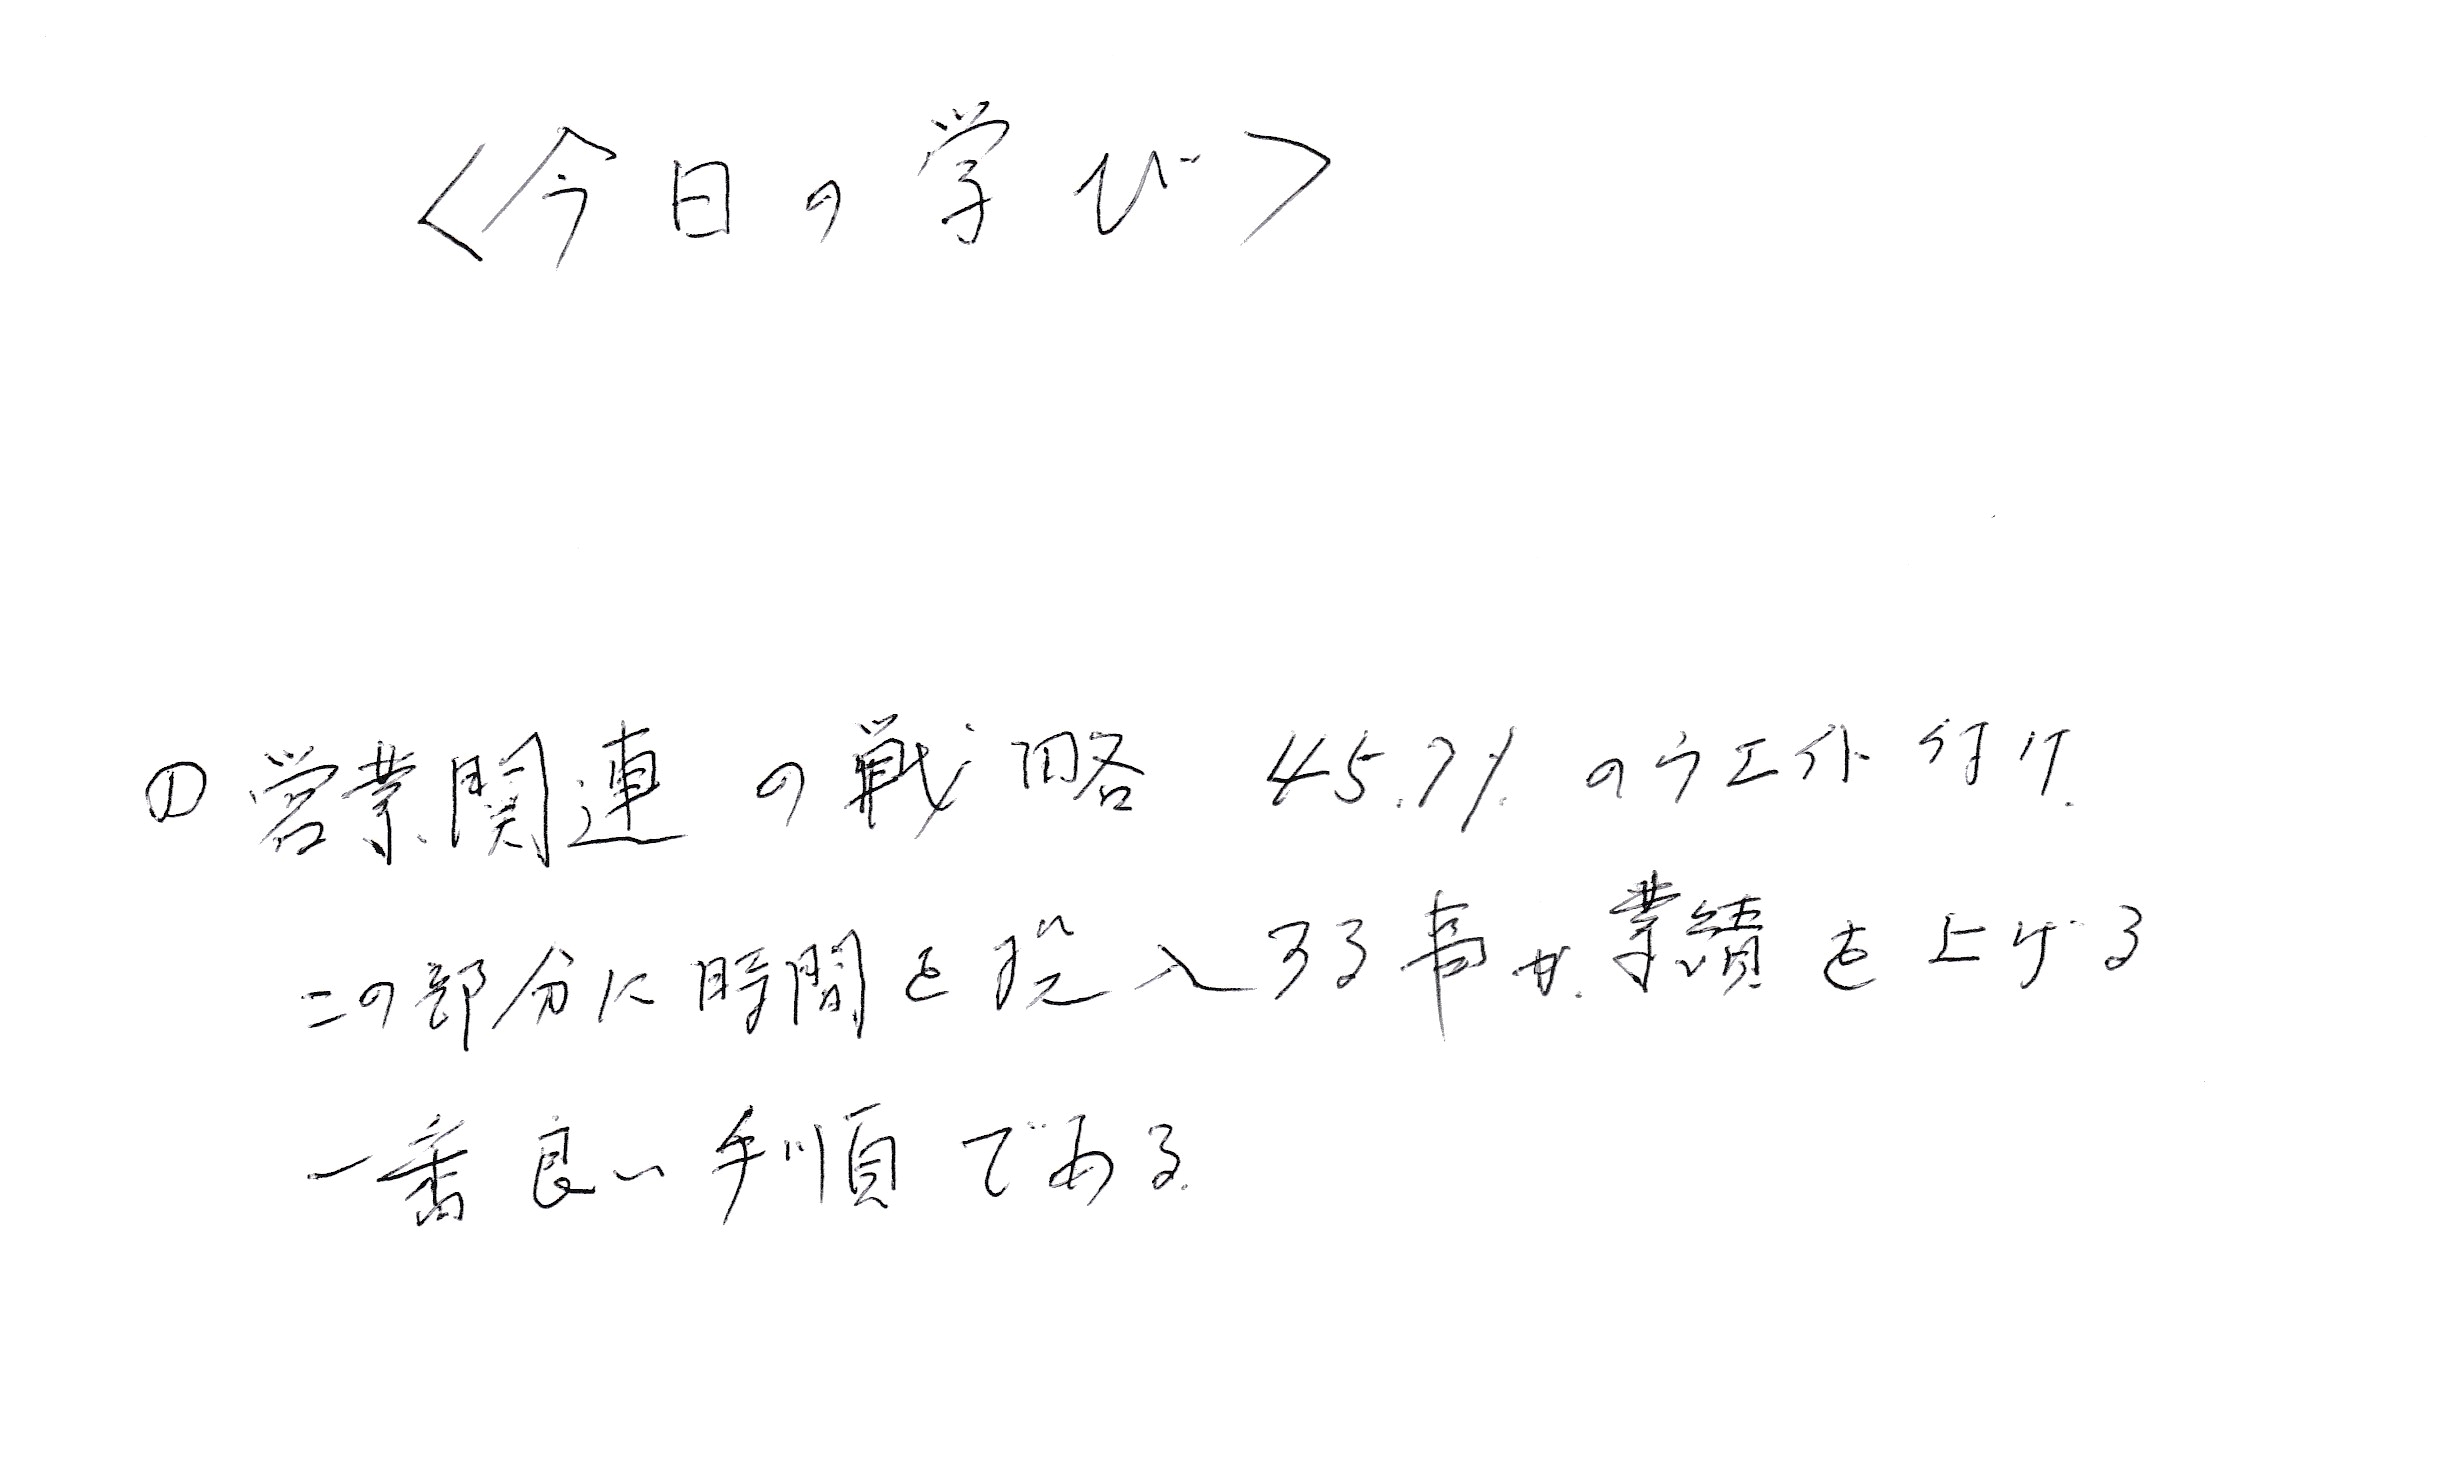 ＜今日の学び＞
① 営業関連の戦略 45.7%のウエイト付け.
この部分に時間を投入する事が業績を上げる
一番良い手順である.